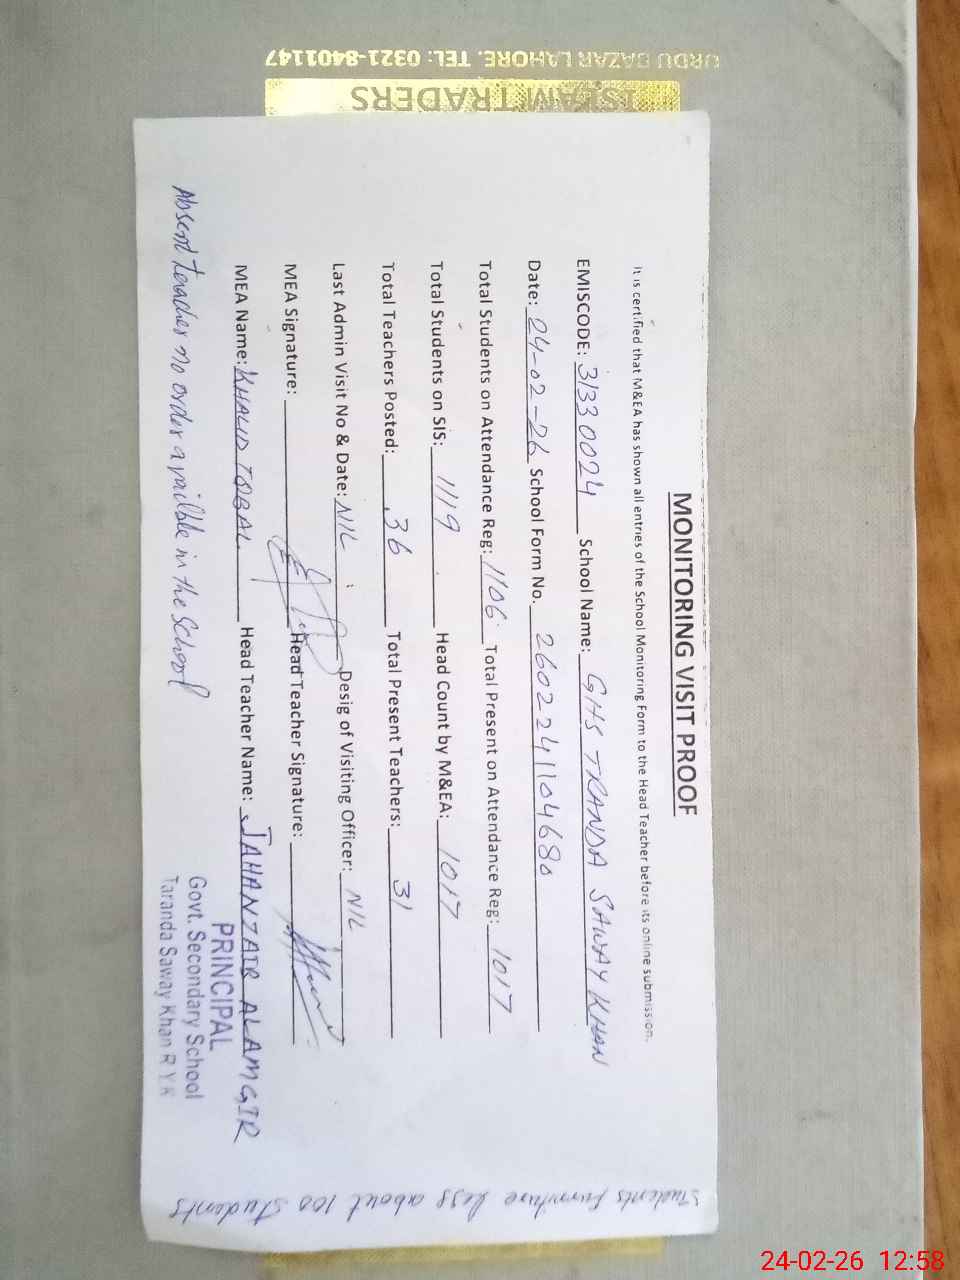 URDU BAZAR LAHORE. TEL: 0321-8401147
ISLAM TRADERS
MONITORING VISIT PROOF
It is certified that M&EA has shown all entries of the School Monitoring Form to the Head Teacher before its online submission.
EMISCODE: 31330024 School Name: GHS TRANDA SAWAY KHAN
Date: 24-02-26 School Form No. 2602241104680
Total Students on Attendance Reg: 1106 Total Present on Attendance Reg: 1017
Total Students on SIS: 1119 Head Count by M&EA: 1017
Total Teachers Posted: 36 Total Present Teachers: 31
Last Admin Visit No & Date: NIL Desig of Visiting Officer: NIL
MEA Signature: Head Teacher Signature:
MEA Name: KHALID IQBAL Head Teacher Name: JAHANZAIB ALAMGIR
PRINCIPAL
Govt. Secondary School
Taranda Saway Khan R Y K
Absent teacher no order availble in the School
Students furniture less about 100 students
24-02-26 12:58